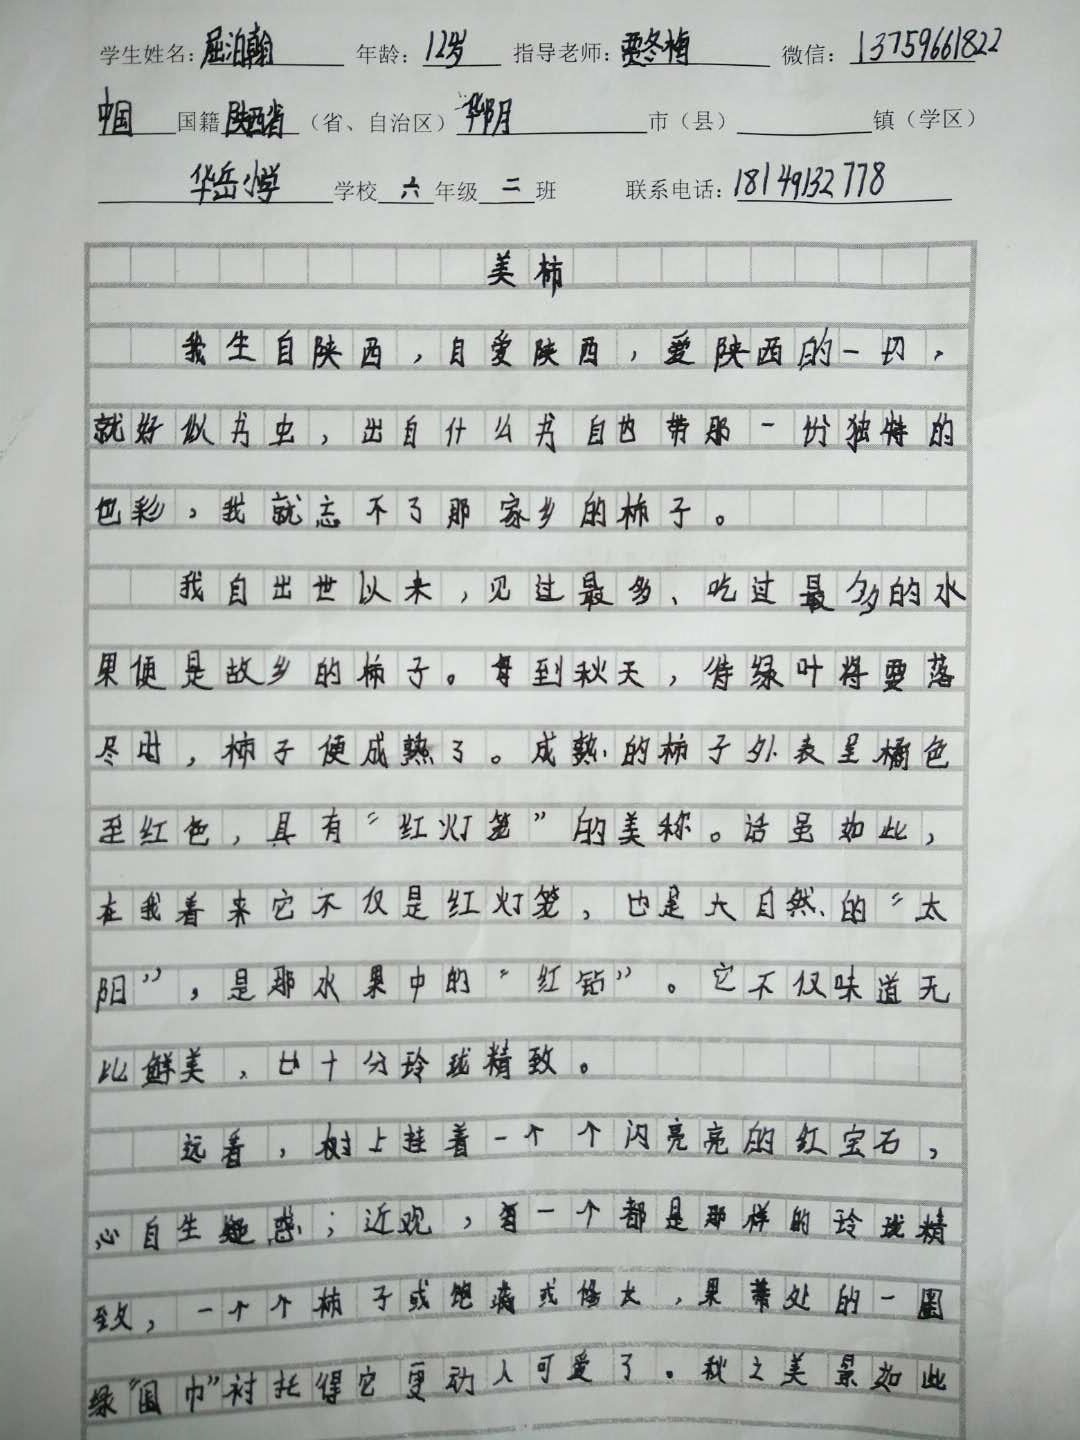 学生姓名：屈泊翰 年龄：12岁 指导老师：贾冬梅 微信：13759661822
中国 国籍 陕西省（省、自治区）华阴 市（县） 镇（学区）
华岳小学 学校 六 年级 二 班 联系电话：18149132778
美柿
我生自陕西，自爱陕西，爱陕西的一切，
就好似书虫，出自什么书自也带那一份独特的
色彩，我就忘不了那家乡的柿子。
我自出世以来，见过最多、吃过最多的水
果便是故乡的柿子。每到秋天，待绿叶将要落
尽时，柿子便成熟了。成熟的柿子外表呈橘色
至红色，具有“红灯笼”的美称。话虽如此，
在我看来它不仅是红灯笼，也是大自然的“太
阳”，是那水果中的“红钻”。它不仅味道无
比鲜美，也十分玲珑精致。
远看，树上挂着一个个闪亮亮的红宝石，
心自生疑惑；近观，每一个都是那样的玲珑精
致，一个个柿子或饱满或修长，果蒂处的一圈
绿“围巾”衬托得它更动人可爱了。秋之美景如此